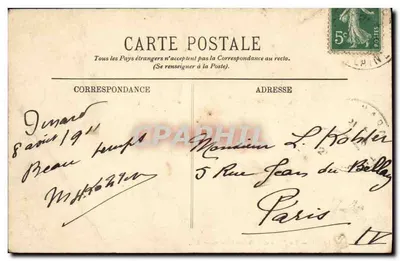 5c
CARTE POSTALE
Tous les Pays étrangers n'acceptent pas la Correspondance au recto.
(Se renseigner à la Poste).
CORRESPONDANCE
ADRESSE
Dinard
8 avril 1911
Beau temps
Monsieur L.
5 Rue Jean du Bellay
Paris
IV